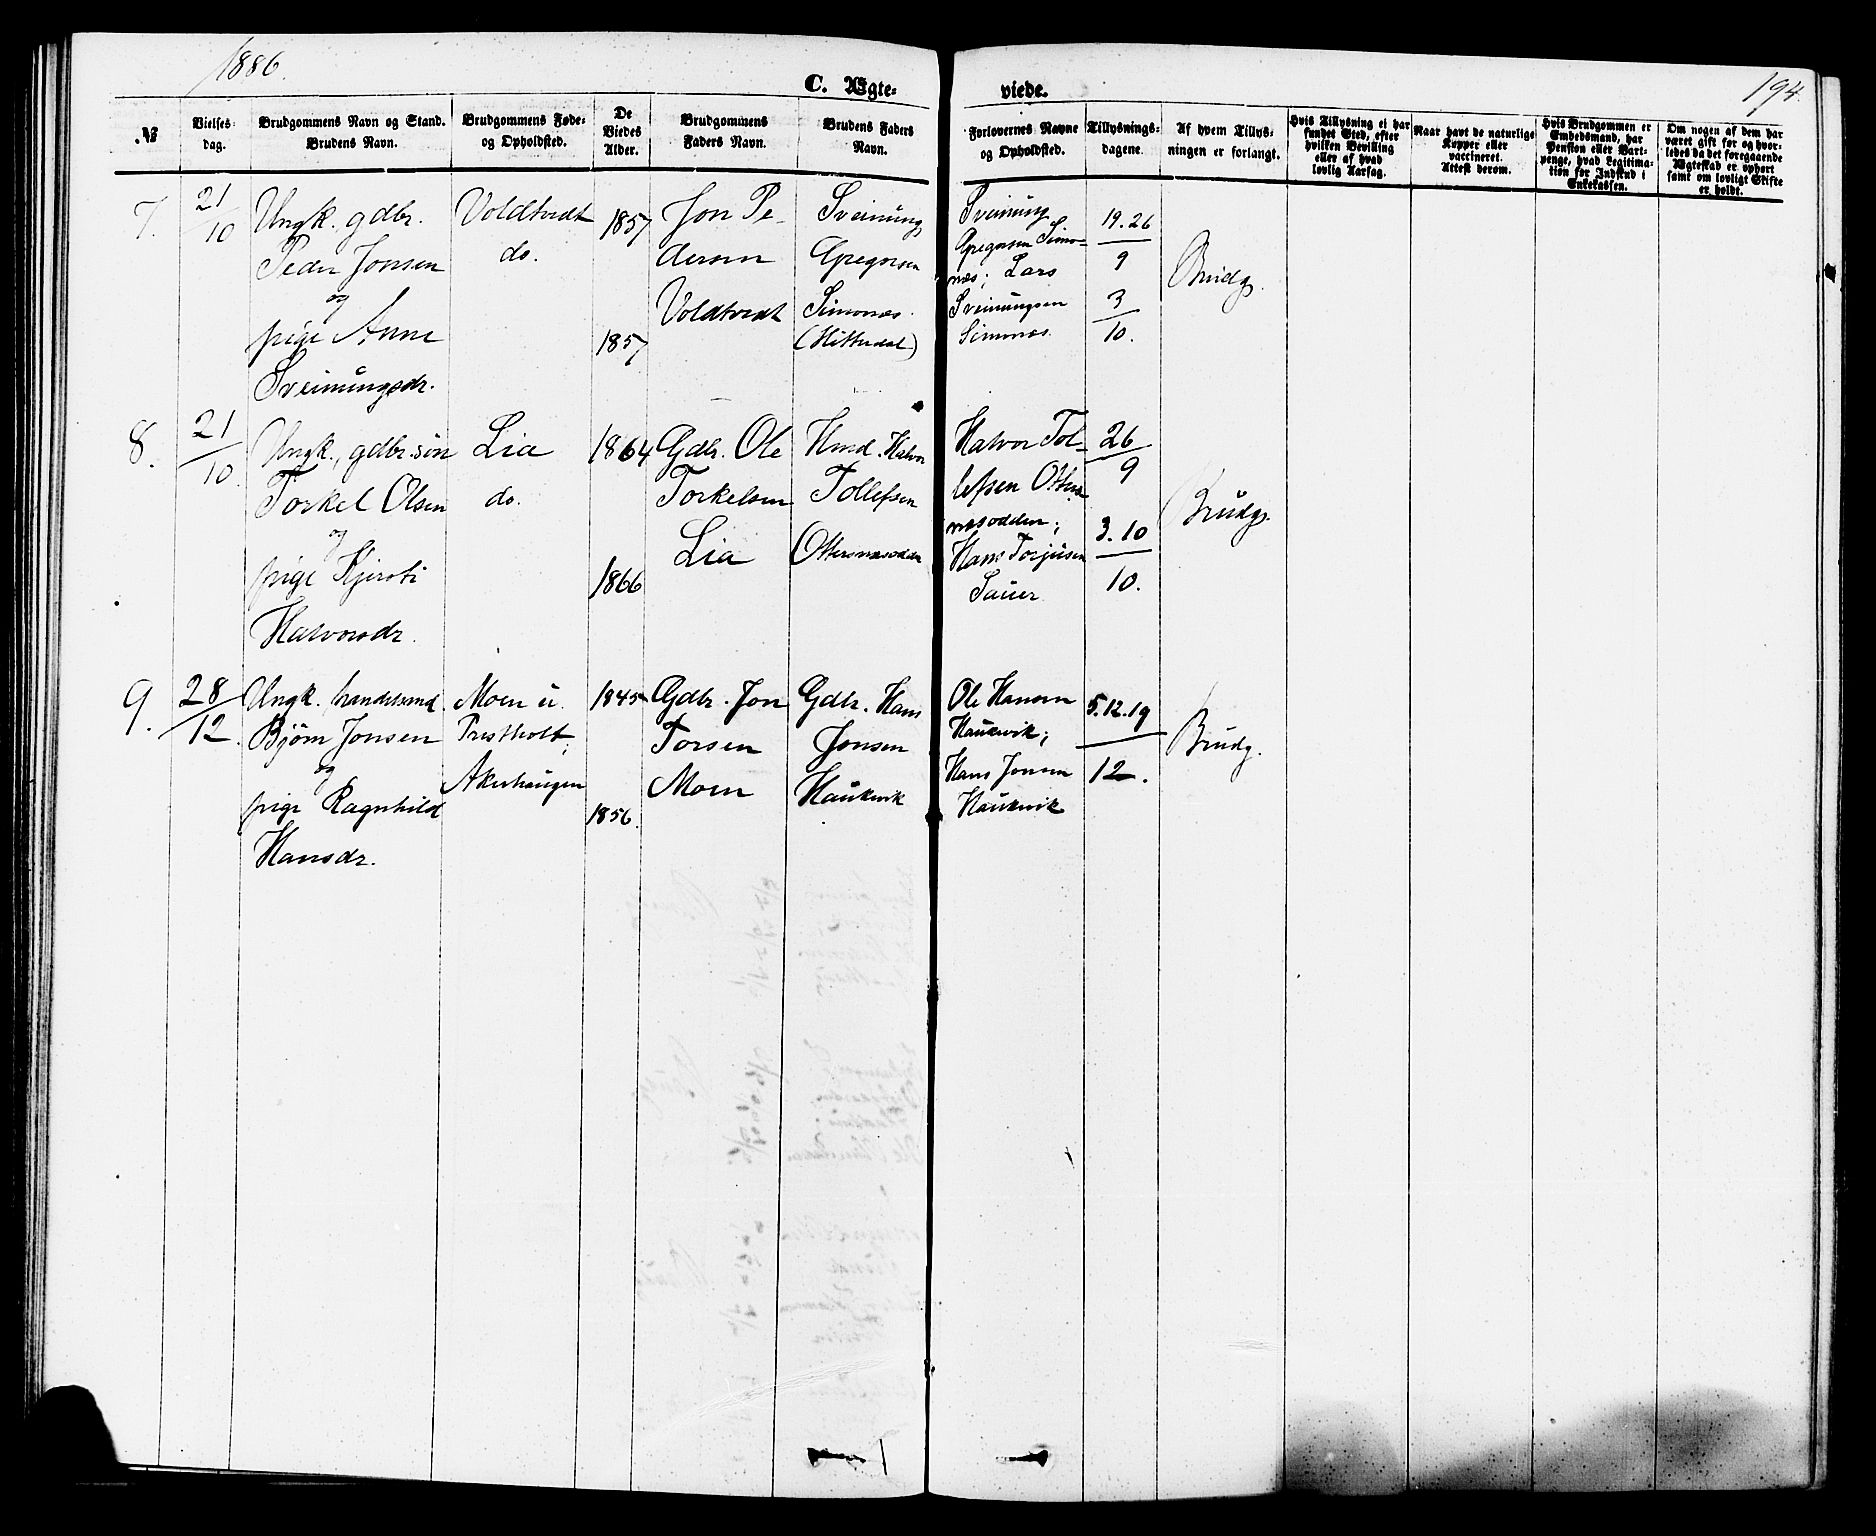 1886.
194.
C. Ægte-
viede.
№
Vielses-
dag.
Brudgommens Navn og Stand.
Brudens Navn.
Brudgommens Føde-
og Opholdsted.
De
Viedes
Alder.
Brudgommens
Faders Navn.
Brudens Faders
Navn.
Forlovernes Navne
og Opholdsted.
Tillysnings-
dagene.
Af hvem Tillys-
ningen er forlangt.
Hvis Tillysning ei har
fundet Sted, efter
hvilken Bevilling
eller af hvad
lovlig Aarsag.
Naar havt de naturlige
Kopper eller
vaccineret.
Attest derom.
Hvis Brudgommen er
Embedsmand, har
Pension eller Vart-
penge, hvad Legitima-
tion for Indskud i
Enkekassen.
Om nogen af dem har
været gift før og hvor-
ledes da det foregaaende
Ægteskab er ophørt
samt om lovligt Skifte
er holdt.
7.
21/10
Ungk. gdbr.
Peder Jonsen
og
pige Anne
Sveinungsdr.
Voldtvedt
do.
1857
1857
Jon Pe-
dersen
Voldtvedt
Sveinung
Gregersen
Simonæs.
(Hitterdal)
Sveinung
Gregersen Simo-
næs; Lars
Sveinungsen
Simonæs.
19. 26
9
3
10.
Brudg.
8.
21/10
Ungk., gdbr.søn
Torkel Olsen
og
pige Kjersti
Halvorsdr.
Lia
do.
1864
1866
Gdbr. Ole
Torkelsen
Lia
Hmd. Halvor
Tollefsen
Ottersnæsodden
Halvor Tol-
lefsen Otters-
næsodden;
Hans Torjusen
Sauer
26
9
3. 10
10.
Brudg.
9.
28/12.
Ungk. handelsmd.
Bjørn Jonsen
og
pige Ragnhild
Hansdr.
Moen u.
Prestholt;
Akerhaugen
1845
1856.
Gdbr. Jon
Torsen
Moen
Gdbr. Hans
Jonsen
Haukvik
Ole Hansen
Haukvik;
Hans Jonsen
Haukvik
5. 12. 19
12.
Brudg.